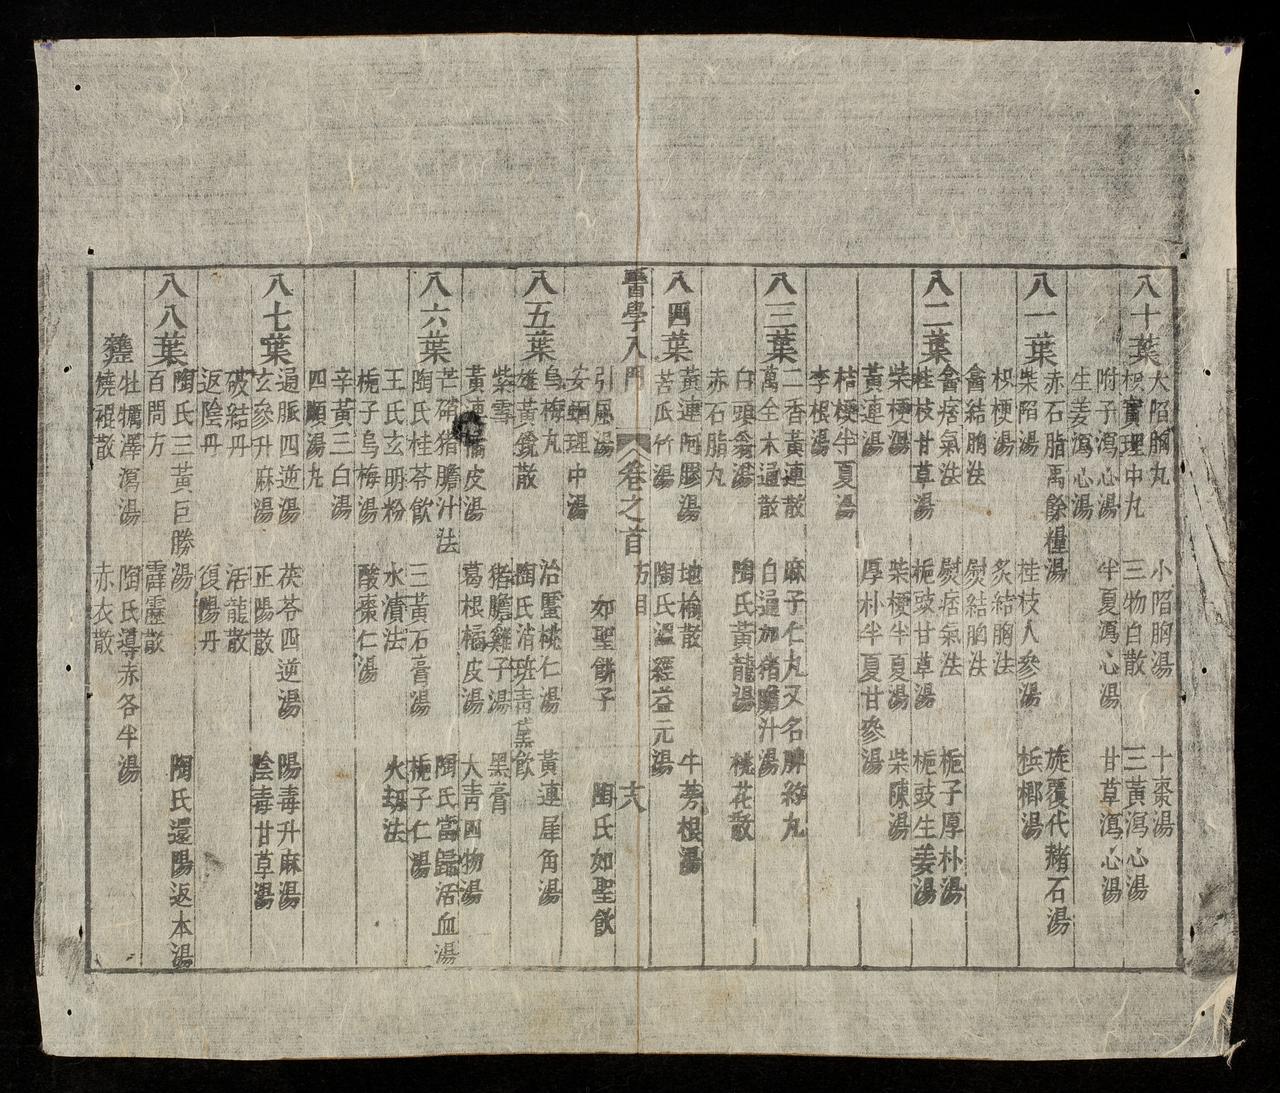 八十葉
大陷胸丸 小陷胸湯 十棗湯
枳實理中丸 三物白散 三黃瀉心湯
附子瀉心湯 半夏瀉心湯 甘草瀉心湯
生姜瀉心湯
八一葉
赤石脂禹餘糧湯 旋覆代赭石湯
柴陷湯 桂枝人參湯 梹榔湯
枳梗湯 炙結胸法
禽結胸法 熨結胸法
八二葉
禽痞氣法 熨痞氣法 梔子厚朴湯
桂枝甘草湯 梔豉甘草湯 梔豉生姜湯
柴梗湯 柴梗半夏湯 柴陳湯
黃連湯 厚朴半夏甘參湯
桔梗半夏湯
李根湯
八三葉
二香黃連散 麻子仁丸又名脾約丸
萬全木通散 白通加猪膽汁湯
白頭翁湯 陶氏黃龍湯 桃花散
赤石脂丸
八四葉
黃連阿膠湯 地榆散 牛蒡根湯
苦瓜竹湯 陶氏溫經益元湯
醫學入門 卷之首 方目 十八
引風湯 如聖餅子 陶氏如聖飲
安蛔理中湯
八五葉
烏梅丸 治䘌桃仁湯 黃連犀角湯
雄黃銳散 陶氏消班青黛飲
紫雪 猪膽雞子湯 黑膏
黃連橘皮湯 葛根橘皮湯 大青四物湯
八六葉
芒硝猪膽汁法 陶氏當歸活血湯
陶氏桂苓飲 三黃石膏湯 梔子仁湯
王氏玄明粉 水漬法 火刼法
梔子烏梅湯 酸棗仁湯
辛黃三白湯
四順湯丸
八七葉
通脈四逆湯 茯苓四逆湯 陽毒升麻湯
玄參升麻湯 正陽散 陰毒甘草湯
破結丹 活龍散
返陰丹 復陽丹
八八葉
陶氏三黃巨勝湯 陶氏還陽返本湯
百問方 霹靂散
牡犡澤瀉湯 陶氏導赤各半湯
燒裩散 赤衣散